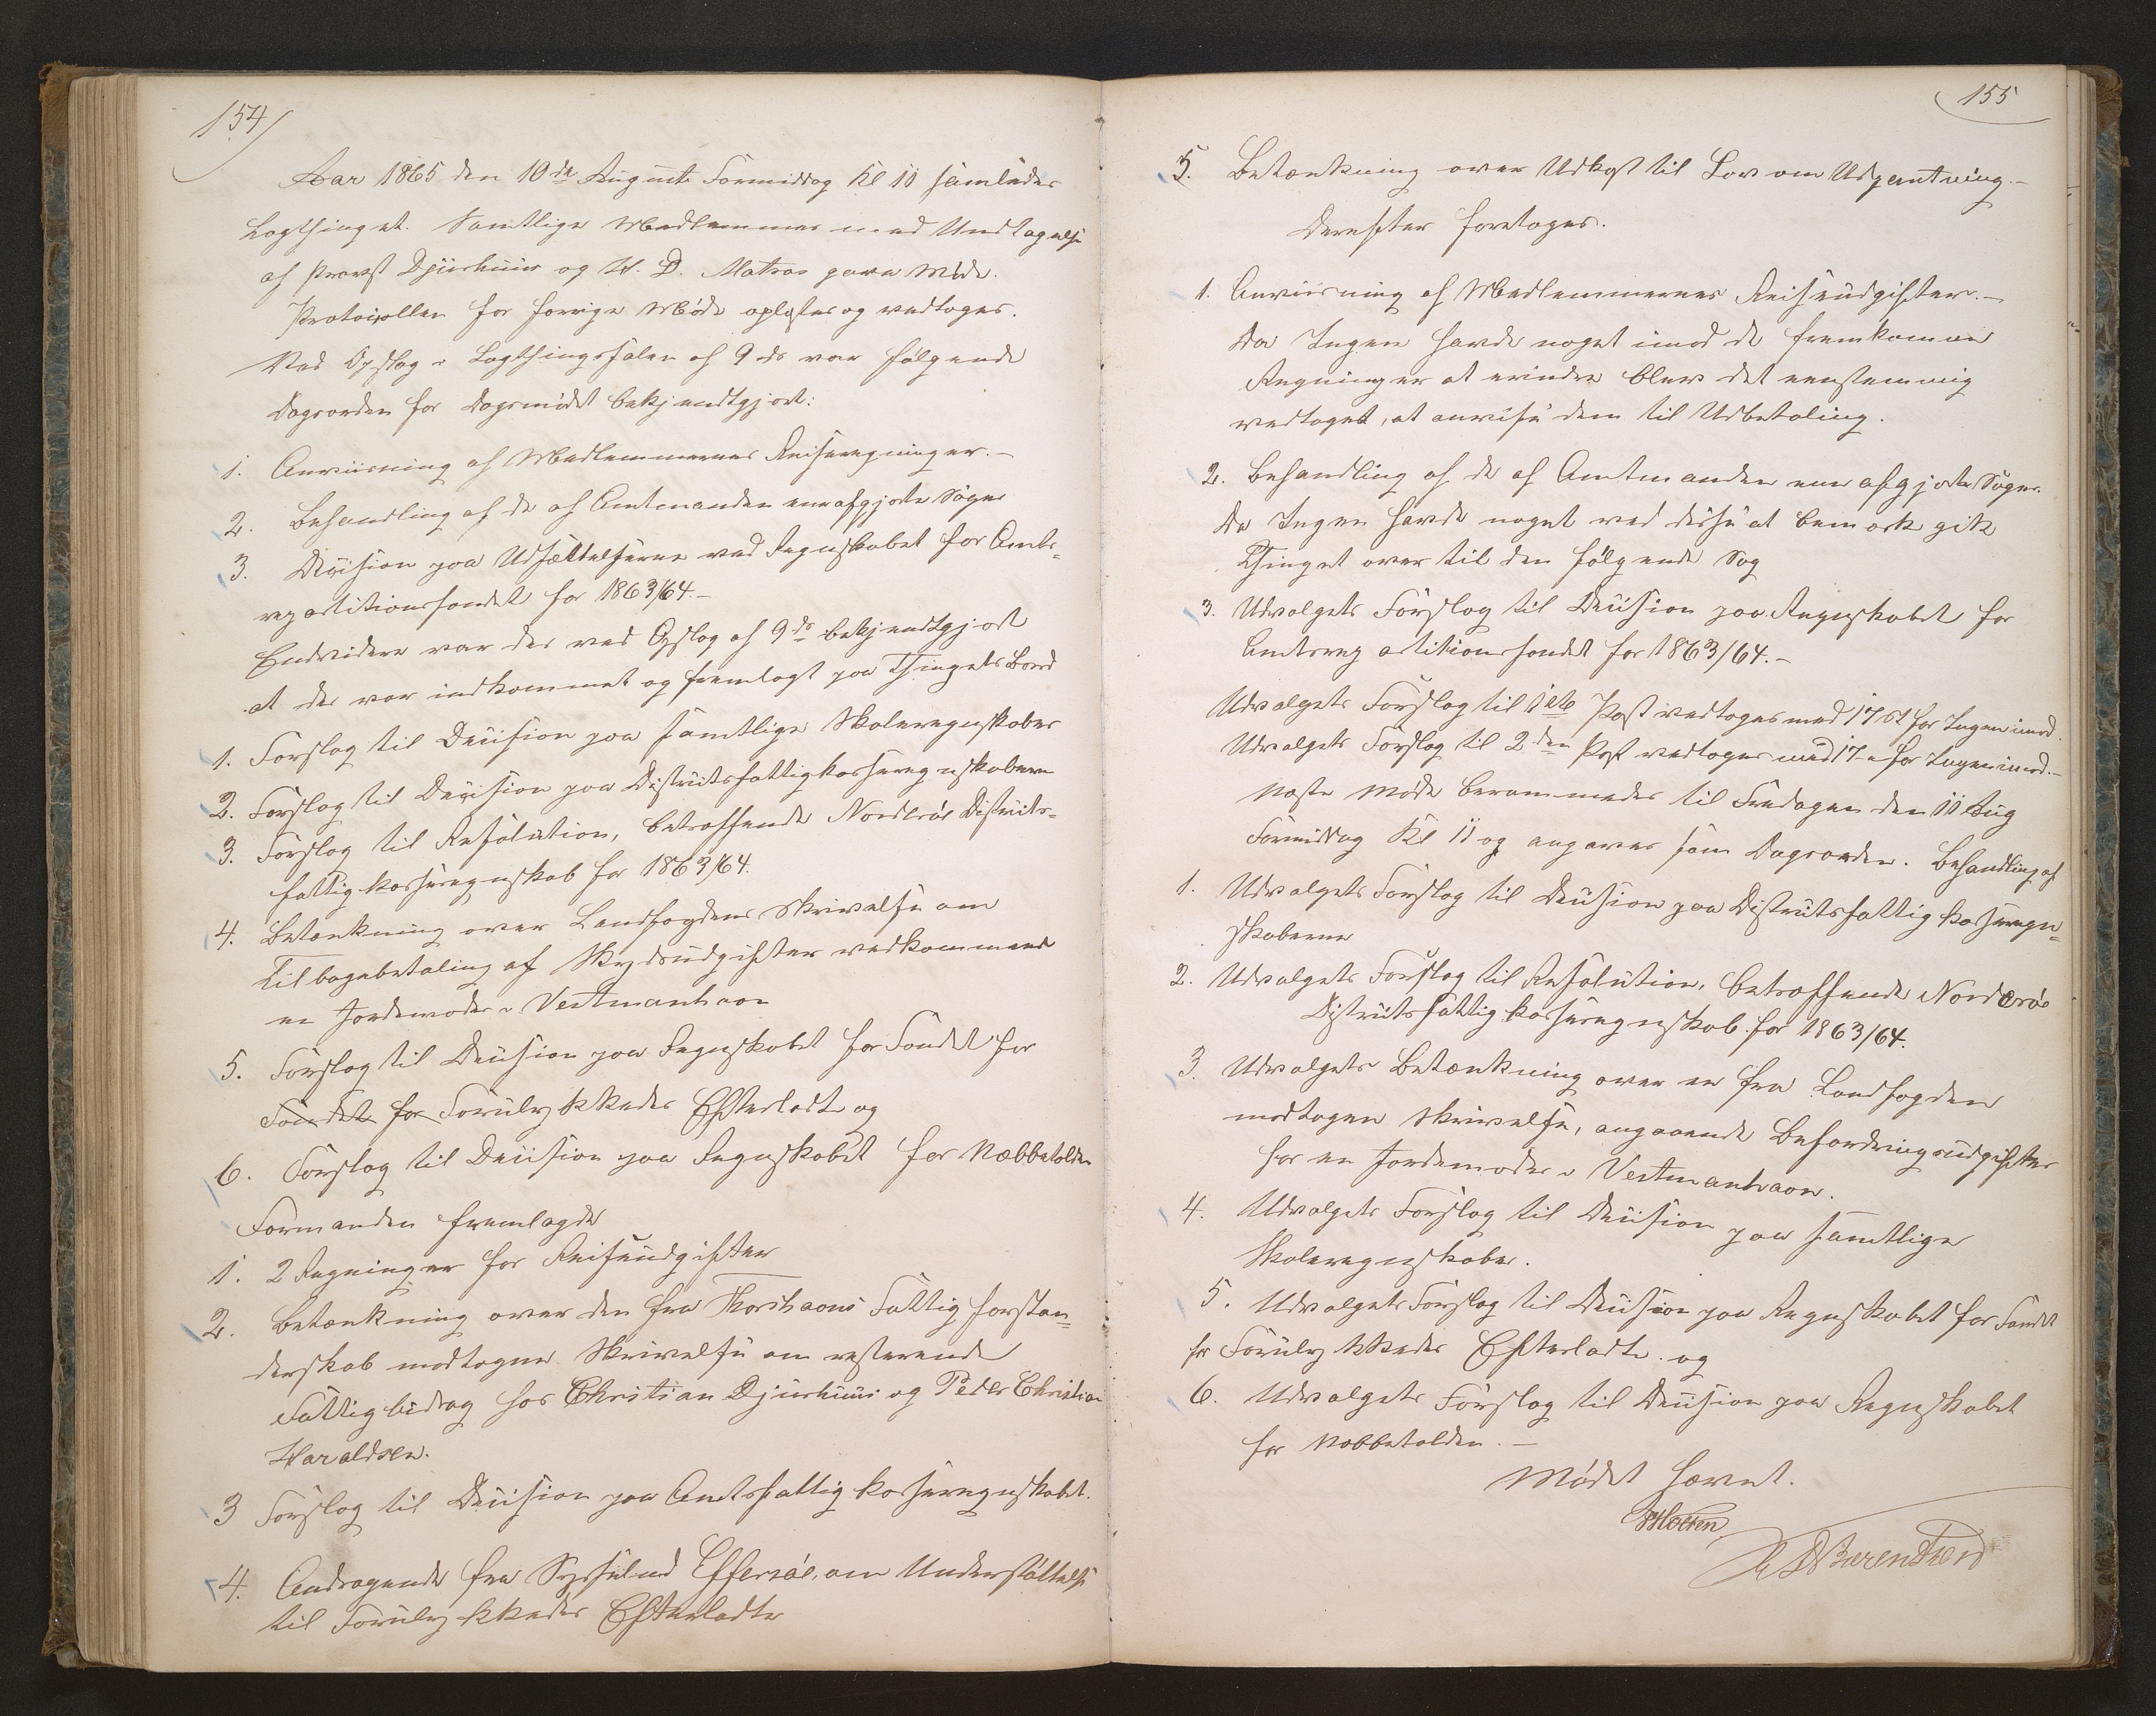 154
Aar 1865 den 10de August Formiddag Kl 11 samledes
Lagthinget. Samtlige Medlemmer med Undtagelse
af Provst Djurhuus og H. D. Matras gave Møde.
Protocollen for forrige Møde oplæstes og vedtoges.
Ved Opslag i Lagthingssalen af 9 ds var følgende
Dagsorden for Dagsmødet bekjendtgjort:
1. Anviisning af Medlemmernes Reiseregninger.-
2. Behandling af de af Amtmanden ene afgjorte Sager
3. Decision paa Udsættelserne ved Regnskabet for Amts-
repartitionsfondet for 1863/64.-
Endvidere var der ved Opslag af 9 ds bekjendtgjort
at der var indkommet og fremlagt paa Thingets Bord
1. Forslag til Decision paa samtlige Skoleregnskaber
2. Forslag til Decision paa Districtsfattigkasseregnskaberne
3. Forslag til Resolution, betræffende Norderøe Districts-
fattigkasseregnskab for 1863/64.
4. Betænkning over Landfogdens Skrivelse om
Tilbagebetaling af Skydsudgifter vedkommende
en Jordemoder i Vestmanhavn
5. Forslag til Decision paa Regnskabet for Fondet for
Fondet for Forulykkedes Efterladte og
6. Forslag til Decision paa Regnskabet for Næbbetolden
Formanden fremlagde
1. 2 Regninger for Reiseudgifter
2. Betænkning over den fra Thorshavns Fattigforstan-
derskab modtagne Skrivelse om resterende
Fattigbidrag hos Christian Djurhuus og Peder Christian
Haraldsen.
3 Forslag til Decision paa Amtsfattigkasseregnskabet.
4. Andragende fra Sysselmd Effersøe, om Understøttelse
til Forulykkedes Efterladte
155
5. Betænkning over Udkast til Lov om Udpantning.-
Derefter foretoges.
1. Anviisning af Medlemmernes Reiseudgifter.-
Da Ingen havde noget imod de fremkomne
Regninger at erindre blev det eenstemmig
vedtaget, at anvise dem til Udbetaling.
2. Behandling af de af Amtmanden ene afgjorte Sager.
Da Ingen havde noget ved disse at bemærke gik
Thinget over til den følgende Sag
3. Udvalgets Forslag til Decision paa Regnskabet for
Amtsrepartitionsfondet for 1863/64.-
Udvalgets Forslag til 1ste Post vedtoges med 17 St for Ingen imod.
Udvalgets Forslag til 2den Post vedtoges med 17 - for Ingen imod.-
Næste Møde berammedes til Fredagen den 11 Aug
Formiddag Kl 11 og angaves som Dagsorden. Behandling af
1. Udvalgets Forslag til Decision paa Districtsfattigkasseregn-
skaberne
2. Udvalgets Forslag til Resolution, betræffende Norderøe
Districtsfattigkasseregnskab for 1863/64.
3. Udvalgets Betænkning over en fra Landfogden
modtagen Skrivelse, angaaende Befordringsudgifter
for en Jordemoder i Vestmanhavn.
4. Udvalgets Forslag til Decision paa samtlige
Skoleregnskaber.
5. Udvalgets Forslag til Decision paa Regnskabet for Fondet
for Forulykkedes Efterladte. og
6. Udvalgets Forslag til Decision paa Regnskabet
for Næbbetolden.-
Mødet hævet.
Holten
Barentsen